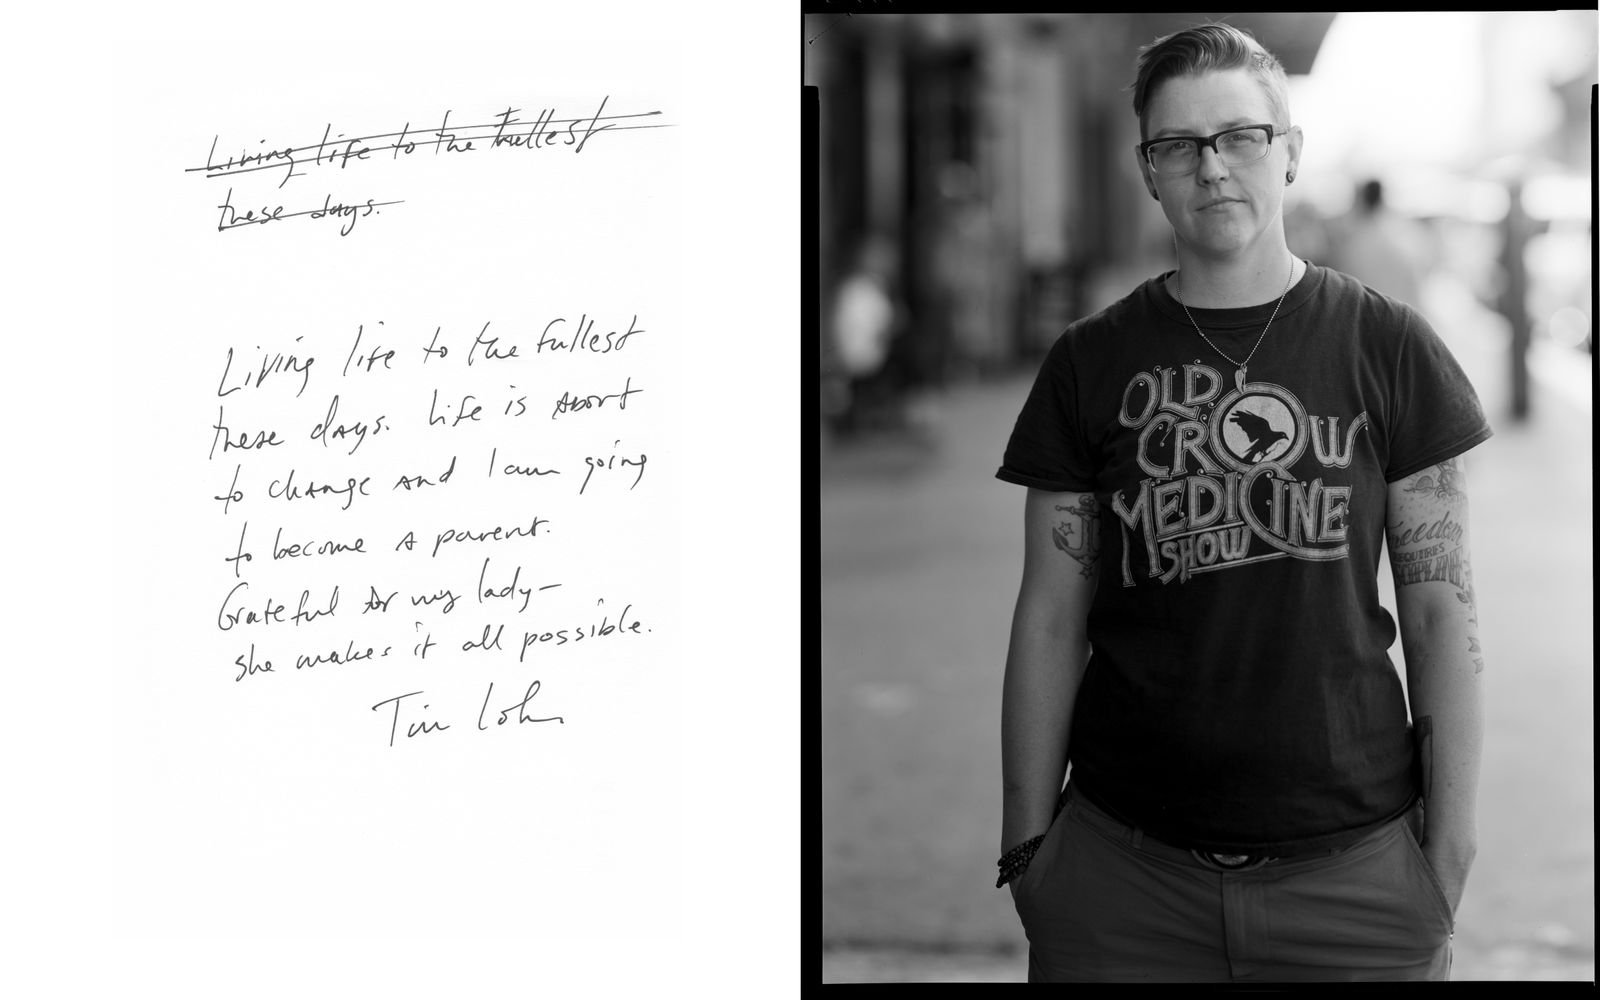 Living life to the Fullest
these days.
Living life to the fullest
these days. Life is about
to change and I am going
to become a parent.
Grateful for my lady—
she makes it all possible.
OLD
CROW
MEDICINE
SHOW
Freedom
REQUIRES
DISCIPLINE